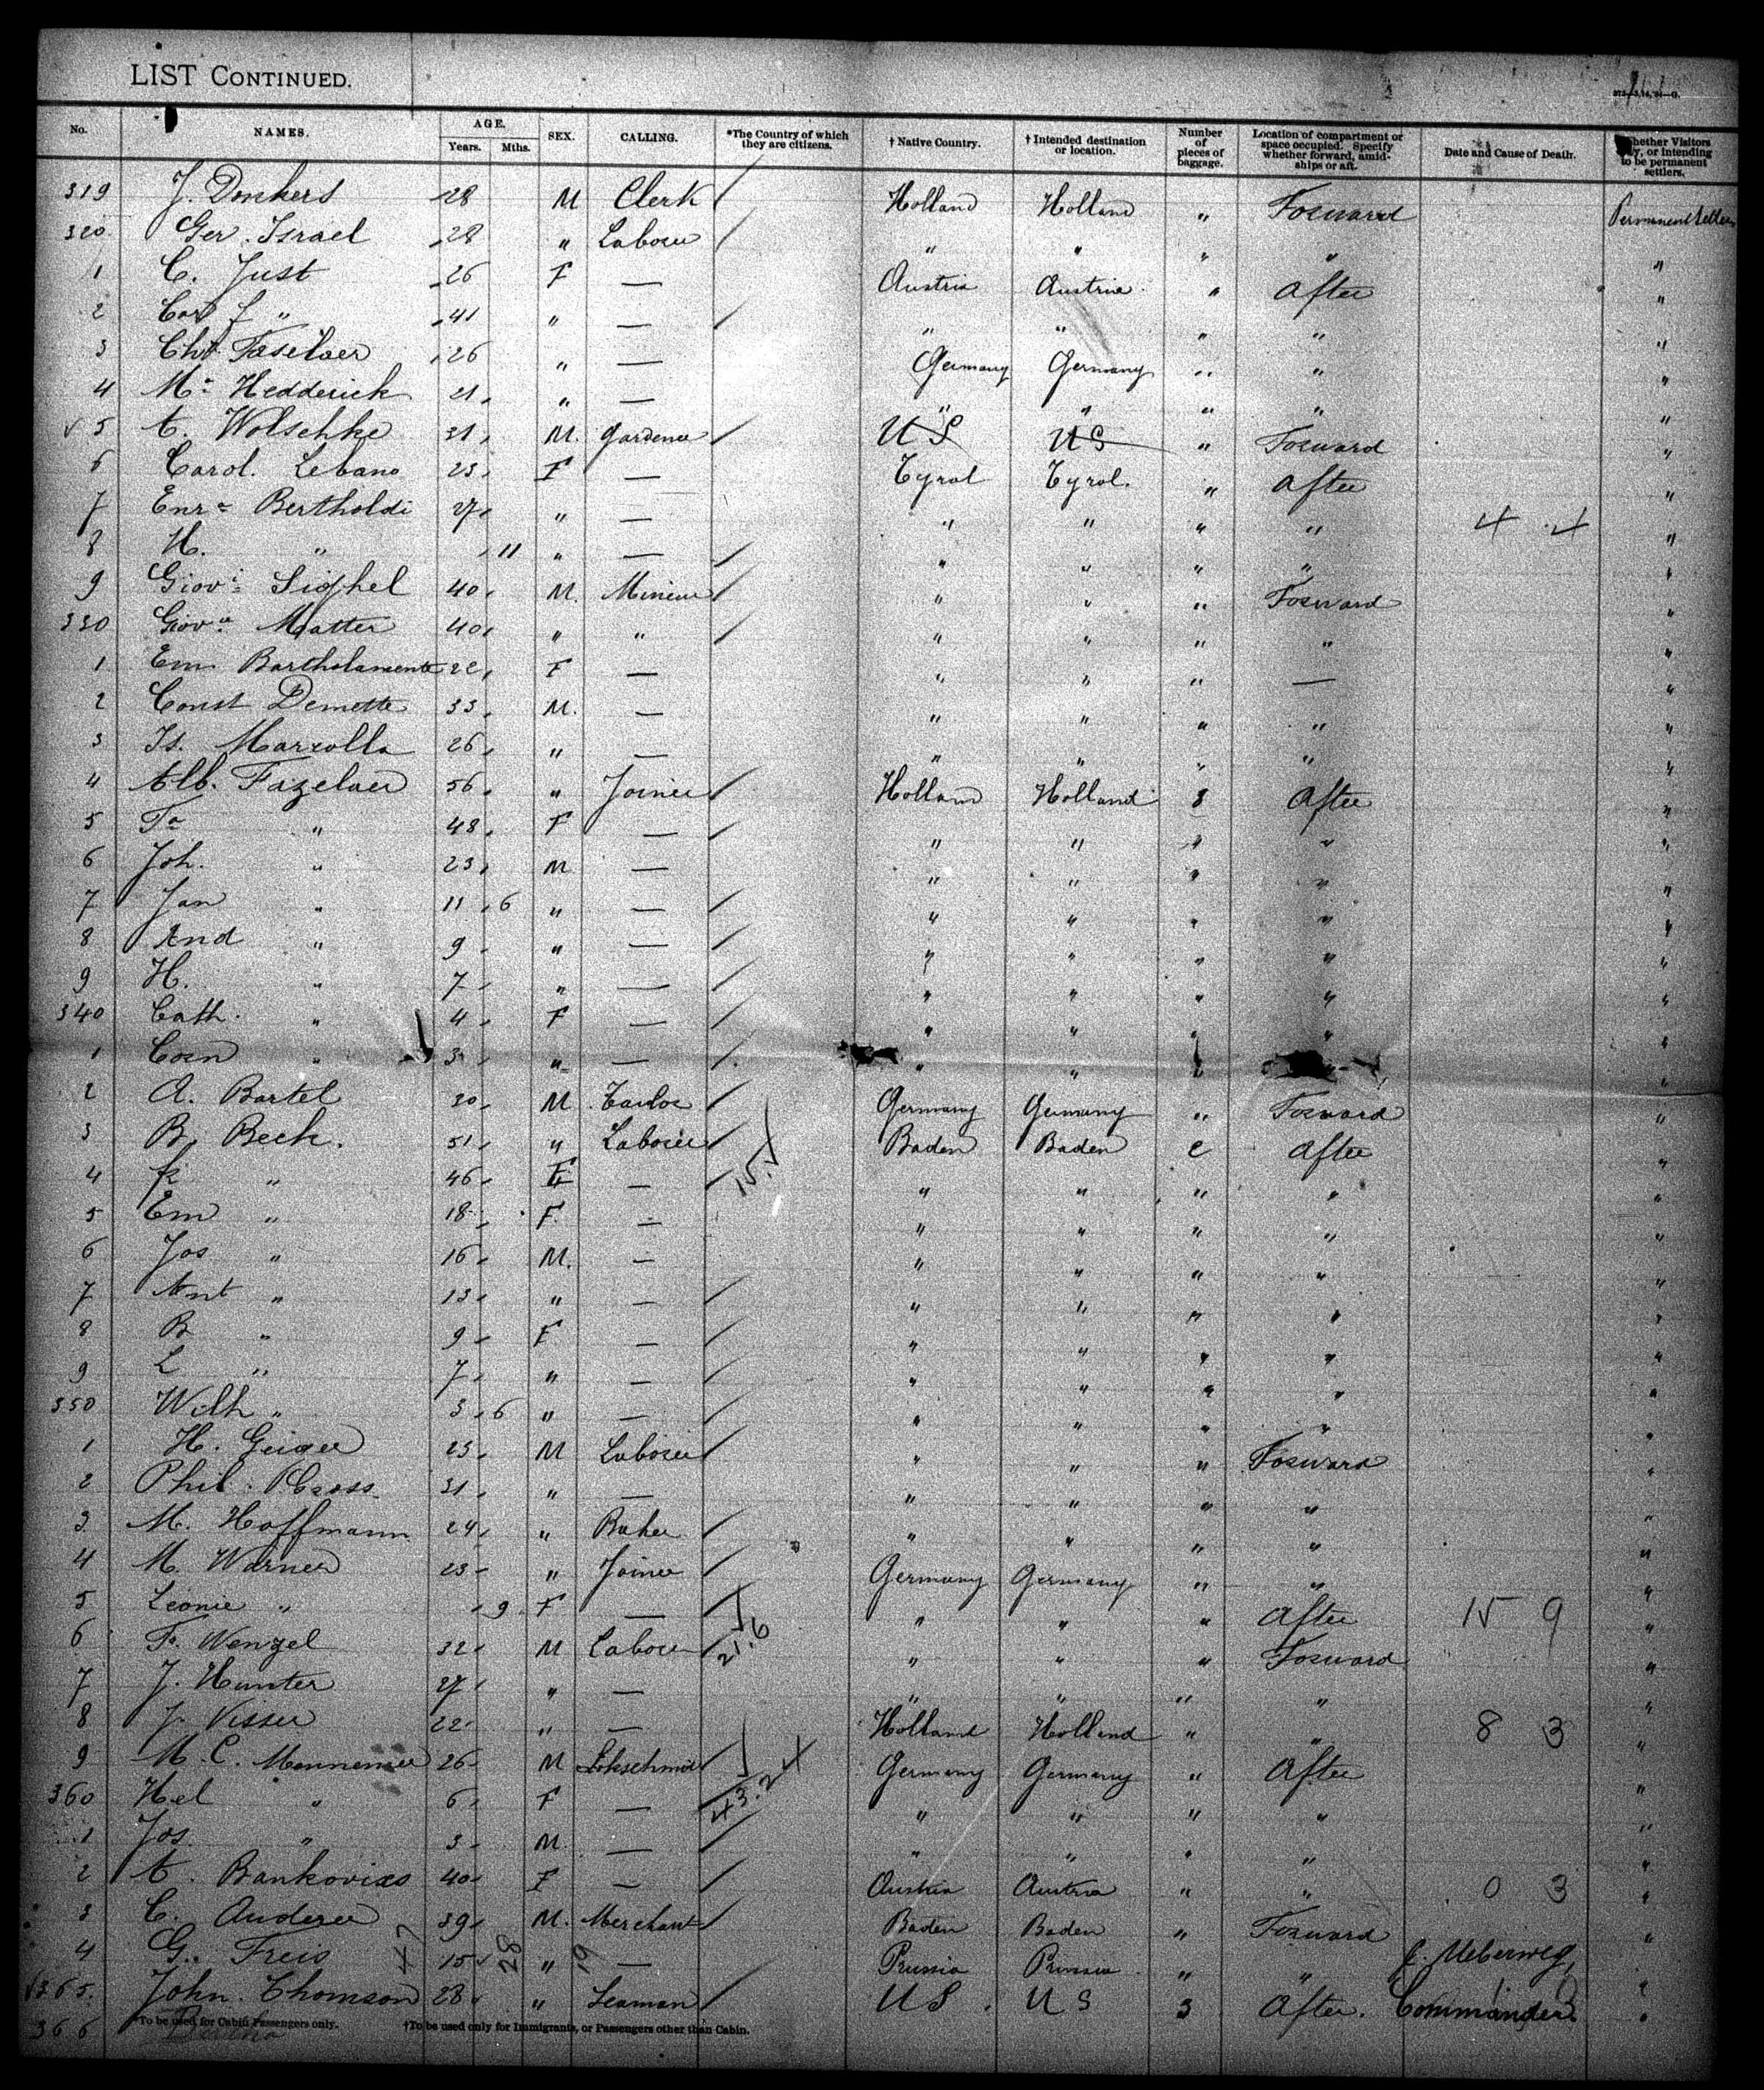 LIST CONTINUED.
No. NAMES. AGE. Years. Mths. SEX. CALLING. *The Country of which they are citizens. † Native Country. † Intended destination or location. Number of pieces of baggage. Location of compartment or space occupied. Specify whether forward, amidships or aft. Date and Cause of Death. Whether Visitors only, or intending to be permanent settlers.
319 J. Donkers 28 M Clerk Holland Holland " Forward Permanent Settlers
320 Ger. Israel 28 " Laborer " " " " "
1 C. Just 26 F — Austria Austria " After "
2 " 41 " — " " " " "
3 Chr. Faselaer 26 " — Germany Germany " " "
4 Ma Hedderick 21 " — " " " " "
5 A. Wolschke 31 M. Gardener U S U S " Forward "
6 Carol. Lebano 23 F — Tyrol Tyrol. " After "
7 Enra Bertholdi 27 " — " " " " 4 4 "
8 H. " 11 " — " " " " "
9 Giovi Sighel 40 M. Miner " " " Forward "
330 Giova Matter 40 " " " " " " "
1 Em Bartholamente 22 F — " " " — "
2 Const Demette 33 M. — " " " " "
3 Is. Marzolla 26 " — " " " " "
4 Alb. Fazelaer 56 " Joiner Holland Holland 8 After "
5 Ta " 48 F — " " " " "
6 Joh. " 23 M — " " " " "
7 Jan " 11 6 " — " " " " "
8 And " 9 " — " " " " "
9 H. " 7 " — " " " " "
340 Cath. " 4 F — " " " " "
1 Corn " 3 " — " " " " "
2 A. Bartel 30 M Tailor Germany Germany " Forward "
3 B. Beck. 51 " Laborer 15.1 Baden Baden 2 After "
4 " 46 F — " " " " "
5 Em " 18 F. — " " " " "
6 Jos " 16 M. — " " " " "
7 Ant " 13 " — " " " " "
8 B " 9 F — " " " " "
9 L " 7 " — " " " " "
350 Wilh " 3 6 " — " " " " "
1 H. Geiger 23 M Laborer " " " Forward "
2 Phil. Gross 31 " — " " " " "
3 M. Hoffmann 24 " Baker " " " " "
4 M. Warner 23 " Joiner Germany Germany " " "
5 Leonie " 9 F — " " " After 15 9 "
6 Fr. Wenzel 32 M Laborer 21.6 " " " Forward "
7 J. Hunter 27 " — " " " " "
8 J. Visser 22 " — Holland Holland " " 8 3 "
9 M. C. Mennemer 26 M Germany Germany " After "
360 Hel " 6 F — 43.2 " " " " "
1 Jos. " 3 M. — " " " " "
2 A. Bankovics 40 F — Austria Austria " " 0 3 "
3 C. Anderer 39 M. Merchant Baden Baden " Forward "
4 G. Freis 47 15 28 " 19 — Prussia Prussia " " C. Ueberweg, "
365. John. Thomson 28 " Seaman U S. U S 3 After. Commander. "
366
*To be used for Cabin Passengers only. †To be used only for Immigrants, or Passengers other than Cabin.